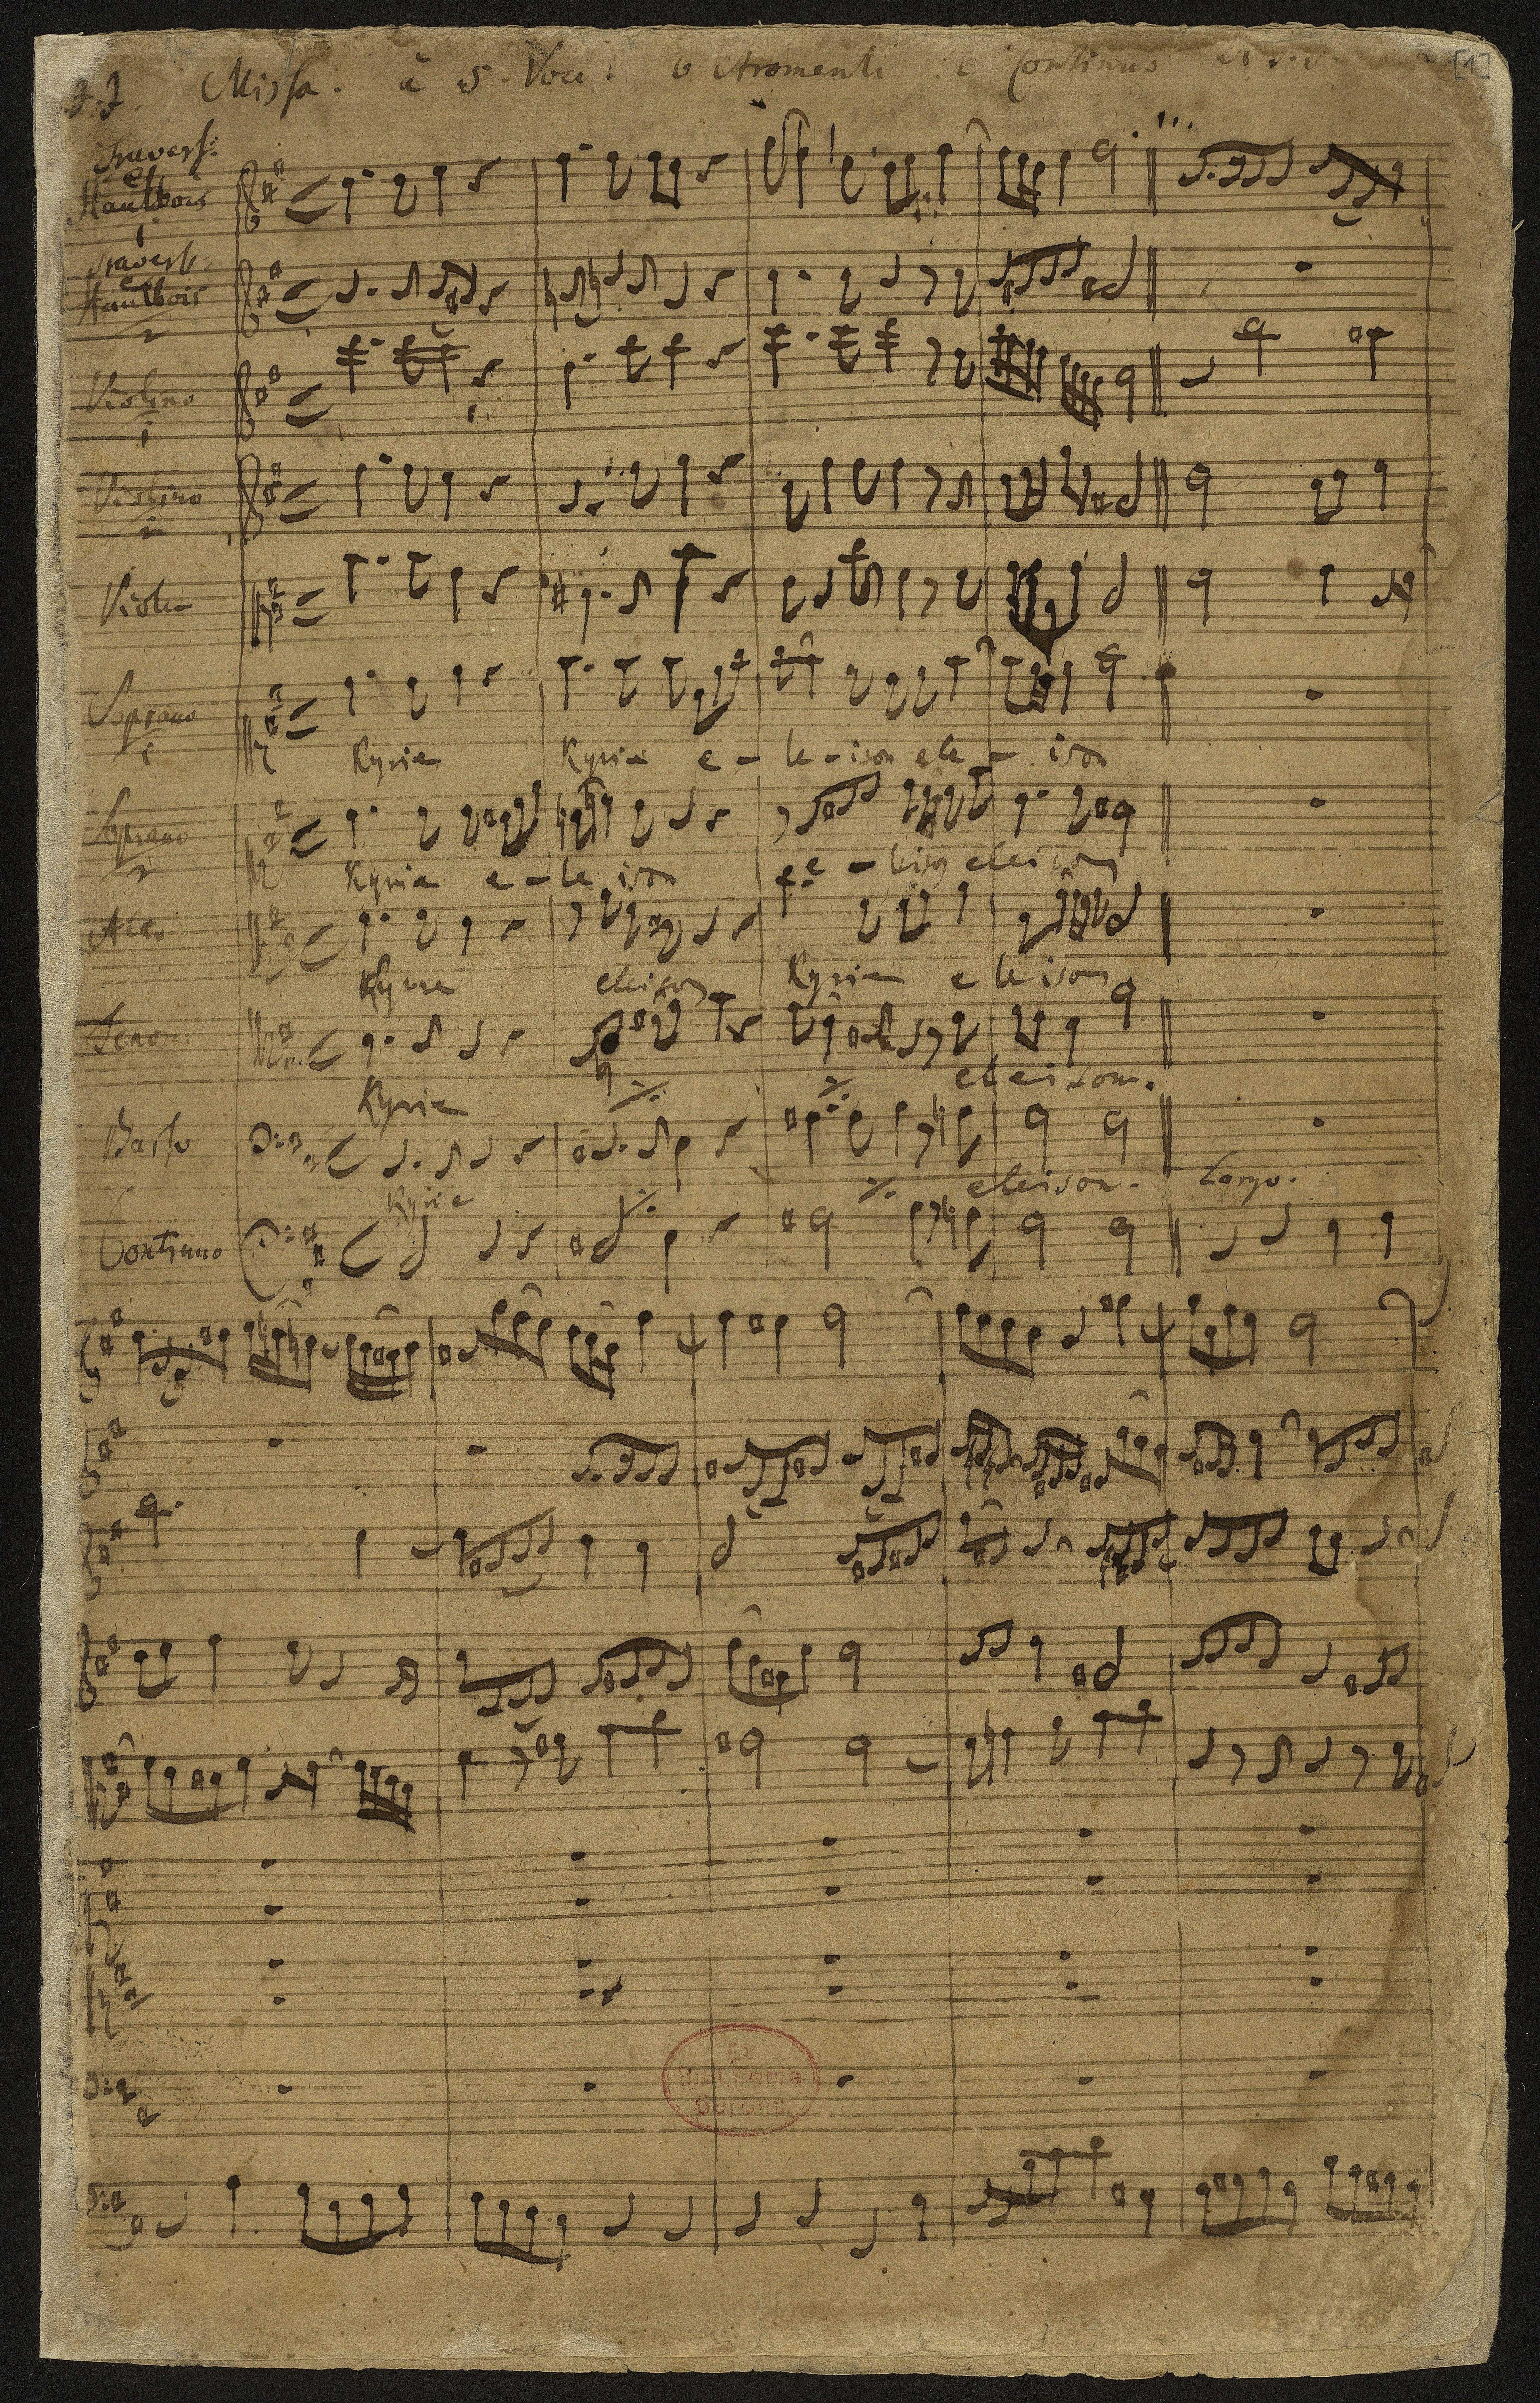 J. J. Missa. à 5. Voci 6 Stromenti e Continuo
[1]
Travers:
et
Hautbois
1
Travers:
Hautbois
2
Violino
1
Violino
2
Viola
Soprano
1
Kyrie Kyrie e - le - ison ele - ison
Soprano
2
Kyrie e - le ison e - leison eleison
Alto
Kyrie eleison Kyrie eleison
Tenore
Kyrie ·/. ·/. eleison.
Basso
Kyrie ·/. ·/. eleison. Largo.
Continuo
Ex
Biblioth. Regia
Berolin.